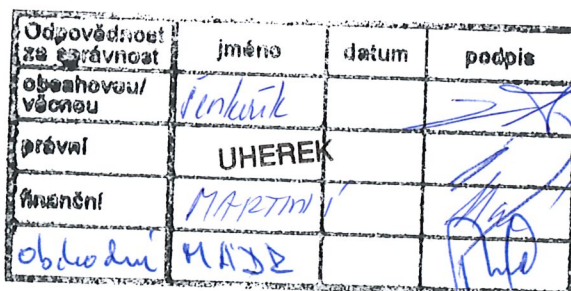 Odpovědnost za správnost jméno datum podpis
obsahovou/ věcnou
právní UHEREK
finanční MARTINÍ
obchodní MÁDR